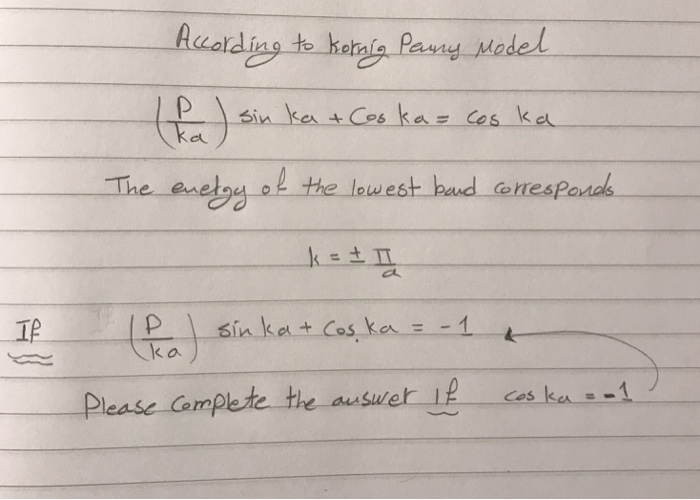 According to Kornig Penny Model
(P/ka) sin ka + Cos ka = cos ka
The energy of the lowest band corresponds
k = ± π/a
If (P/ka) sin ka + Cos ka = -1
Please complete the answer If cos ka = -1